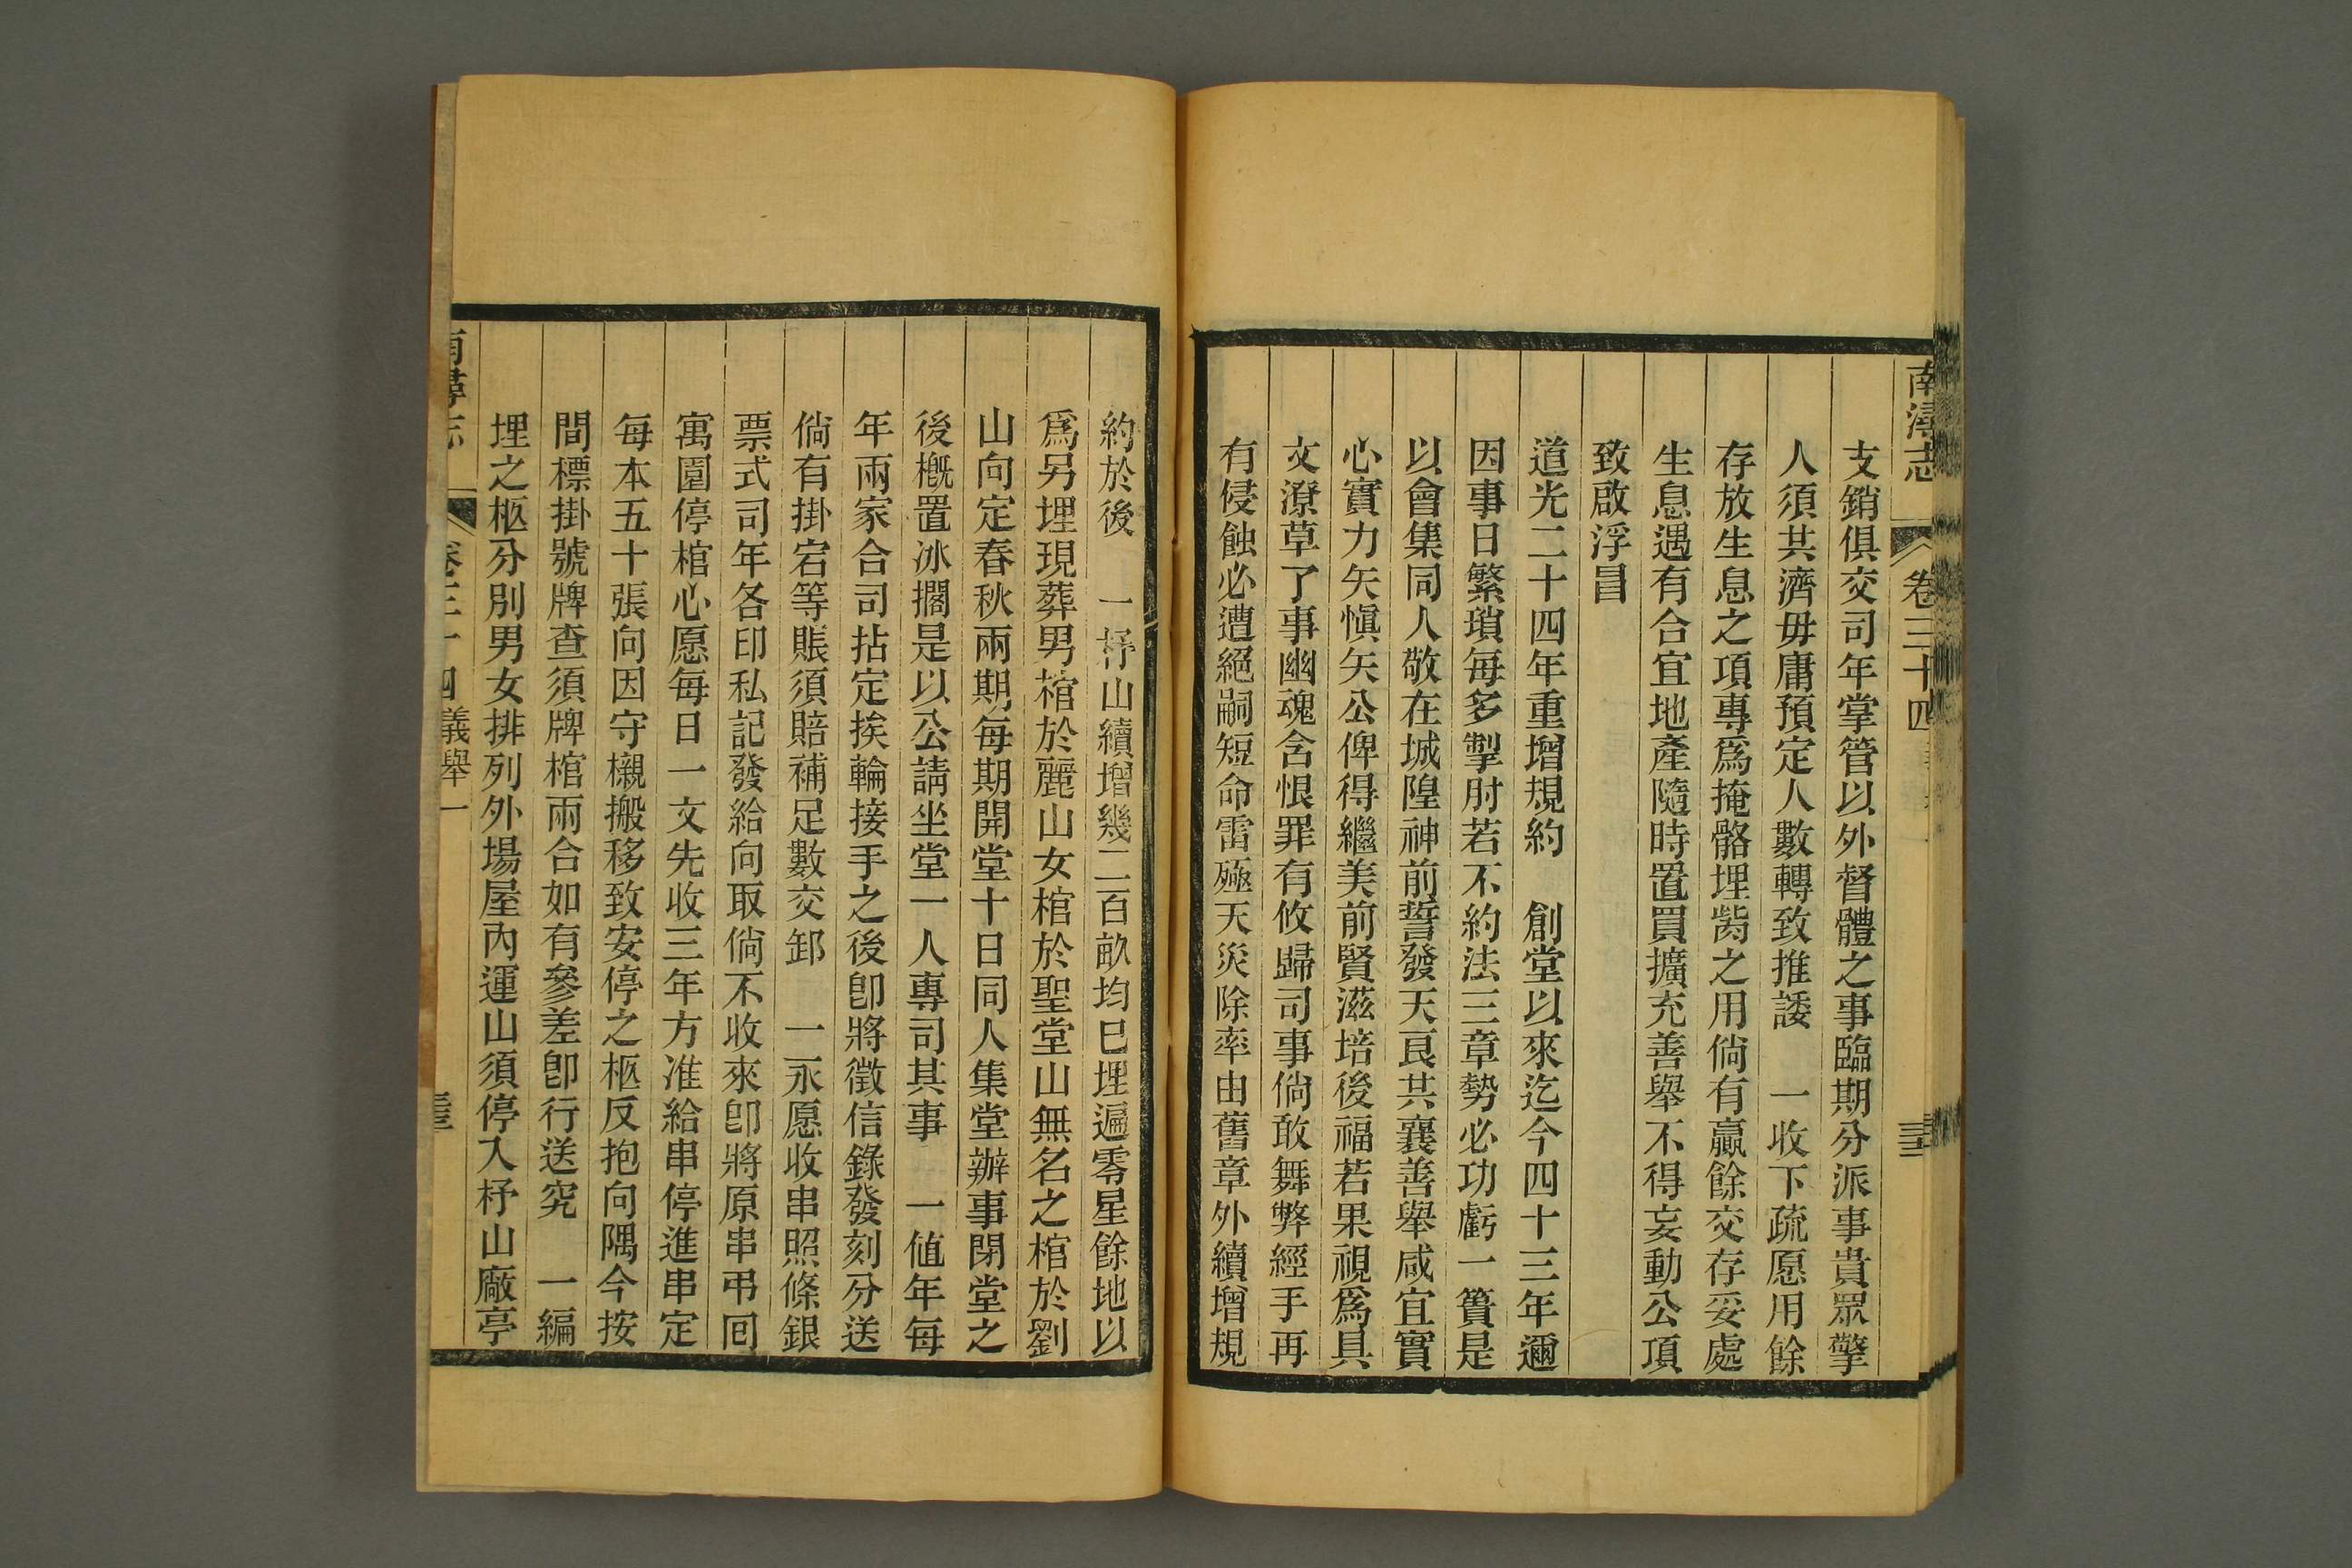 南潯志
卷三十四
支銷俱交司年掌管以外督體之事臨期分派事貴眾擎
人須共濟毋庸預定人數轉致推諉　一收下疏愿用餘
存放生息之項專爲掩骼埋胔之用倘有贏餘交存妥處
生息遇有合宜地產隨時置買擴充善舉不得妄動公項
致啟浮冒
道光二十四年重增規約　創堂以來迄今四十三年邇
因事日繁瑣每多掣肘若不約法三章勢必功虧一簣是
以會集同人敬在城隍神前誓發天良共襄善舉咸宜實
心實力矢愼矢公俾得繼美前賢滋培後福若果視爲具
文潦草了事幽魂含恨罪有攸歸司事倘敢舞弊經手再
有侵蝕必遭絕嗣短命雷殛天災除率由舊章外續增規
約於後　一杼山續增幾二百畝均已埋遍零星餘地以
爲另埋現葬男棺於麗山女棺於聖堂山無名之棺於劉
山向定春秋兩期每期開堂十日同人集堂辦事閉堂之
後槪置冰擱是以公請坐堂一人專司其事　一值年每
年兩家合司拈定挨輪接手之後卽將徵信錄發刻分送
倘有掛宕等賬須賠補足數交卸　一永愿收串照條銀
票式司年各印私記發給向取倘不收來卽將原串弔回
寓圍停棺心愿每日一文先收三年方准給串停進串定
每本五十張向因守櫬搬移致安停之柩反抱向隅今按
間標掛號牌查須牌棺兩合如有參差卽行送究　一編
埋之柩分別男女排列外場屋內運山須停入杼山廠亭
南潯志
卷三十四
義舉一